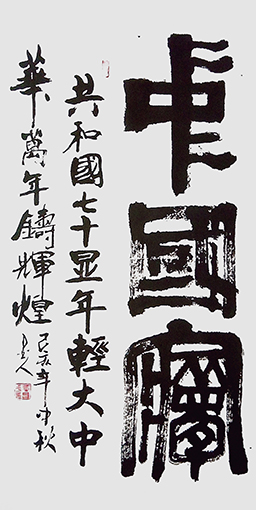 中國夢
共和國七十显年輕大中
華萬年鑄輝煌
己亥年中秋